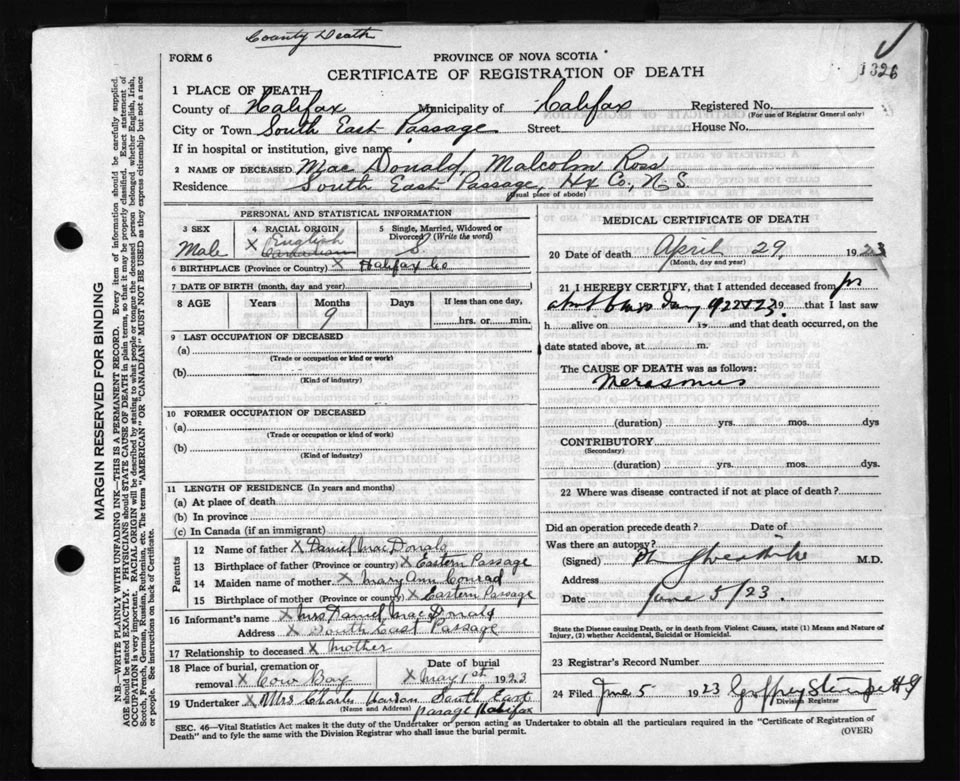 County Death
FORM 6
PROVINCE OF NOVA SCOTIA
CERTIFICATE OF REGISTRATION OF DEATH
1326
1 PLACE OF DEATH
County of Halifax Municipality of Halifax Registered No.
(For use of Registrar General only)
City or Town South East Passage Street House No.
If in hospital or institution, give name
2 NAME OF DECEASED Mac Donald, Malcolm Ross
Residence South East Passage, Hx Co., N.S.
(Usual place of abode)
PERSONAL AND STATISTICAL INFORMATION
3 SEX 4 RACIAL ORIGIN 5 Single, Married, Widowed or Divorced (Write the word)
Male X English Canadian S
6 BIRTHPLACE (Province or Country) X Halifax Co
7 DATE OF BIRTH (month, day and year)
8 AGE Years Months Days If less than one day,
9 hrs. or min.
9 LAST OCCUPATION OF DECEASED
(a)
(Trade or occupation or kind of work)
(b)
(Kind of industry)
10 FORMER OCCUPATION OF DECEASED
(a)
(Trade or occupation or kind of work)
(b)
(Kind of industry)
11 LENGTH OF RESIDENCE (In years and months)
(a) At place of death
(b) In province
(c) In Canada (if an immigrant)
Parents
12 Name of father X Daniel Mac Donald
13 Birthplace of father (Province or country) X Eastern Passage
14 Maiden name of mother X Mary Ann Conrad
15 Birthplace of mother (Province or country) X Eastern Passage
16 Informant's name X Mrs Daniel Mac Donald
Address X South East Passage
17 Relationship to deceased X Mother
18 Place of burial, cremation or removal X Cow Bay Date of burial X May 1st 1923
19 Undertaker X Mrs Charles South East
(Name and Address) Passage Halifax
MEDICAL CERTIFICATE OF DEATH
20 Date of death April 29, 1923
(Month, day and year)
21 I HEREBY CERTIFY, that I attended deceased for
19 that I last saw
h alive on 19 and that death occurred, on the
date stated above, at m.
The CAUSE OF DEATH was as follows:
Merasmus
(duration) yrs. mos. dys
CONTRIBUTORY
(Secondary)
(duration) yrs. mos. dys.
22 Where was disease contracted if not at place of death?
Did an operation precede death? Date of
Was there an autopsy?
(Signed) M.D.
Address
Date June 5/23.
State the Disease causing Death, or in death from Violent Causes, state (1) Means and Nature of
Injury, (2) whether Accidental, Suicidal or Homicidal.
23 Registrar's Record Number
24 Filed June 5 1923 Geoffrey
Division Registrar
SEC. 46—Vital Statistics Act makes it the duty of the Undertaker or person acting as Undertaker to obtain all the particulars required in the "Certificate of Registration of
Death" and to fyle the same with the Division Registrar who shall issue the burial permit. (OVER)
MARGIN RESERVED FOR BINDING
N.B.—WRITE PLAINLY WITH UNFADING INK—THIS IS A PERMANENT RECORD. Every item of information should be carefully supplied.
AGE should be stated EXACTLY. PHYSICIANS should STATE CAUSE OF DEATH in plain terms, so that it may be properly classified. Exact statement of
OCCUPATION is very important. RACIAL ORIGIN will be described by stating to what people or tongue the deceased person belonged whether English, Irish,
Scotch, French, German, Russian, Ruthenian, etc. The terms "AMERICAN" OR "CANADIAN" MUST NOT BE USED as they express citizenship but not a race
or people. See instructions on back of Certificate.